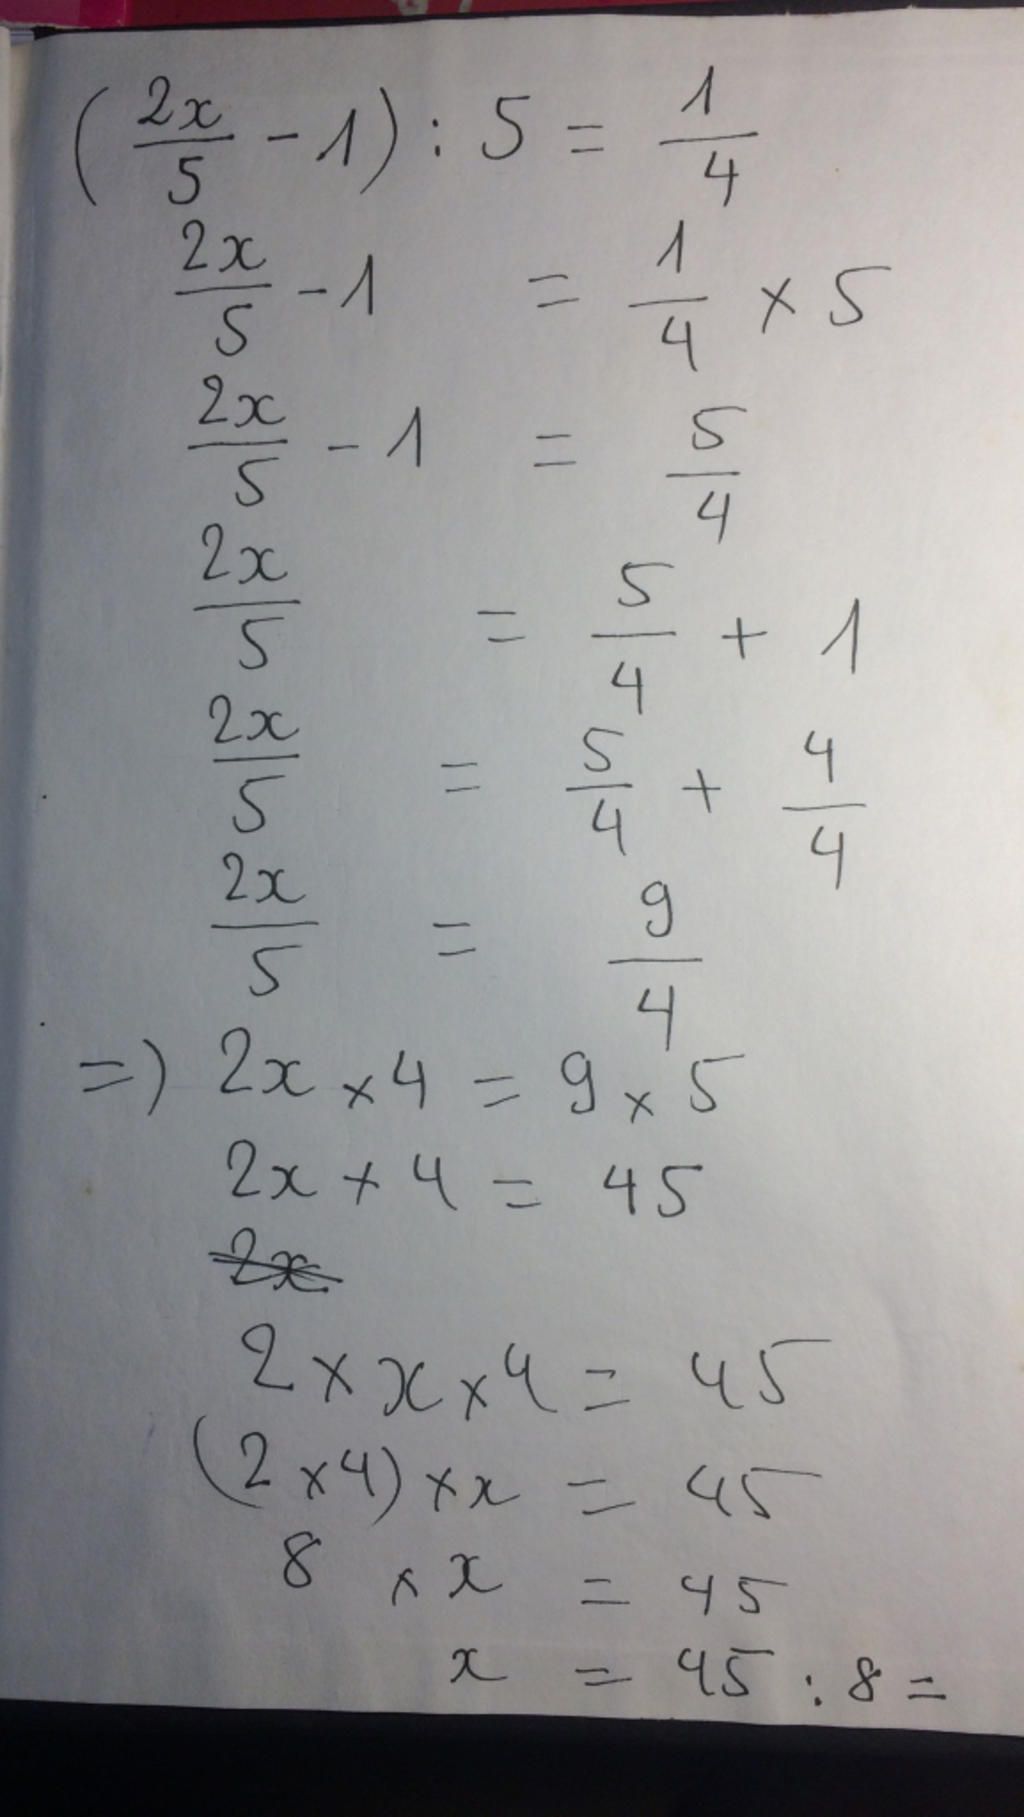 (2x/5 - 1) : 5 = 1/4
2x/5 - 1 = 1/4 × 5
2x/5 - 1 = 5/4
2x/5 = 5/4 + 1
2x/5 = 5/4 + 4/4
2x/5 = 9/4
=) 2x × 4 = 9 × 5
2x × 4 = 45
2x
2 × x × 4 = 45
(2 × 4) × x = 45
8 × x = 45
x = 45 : 8 =